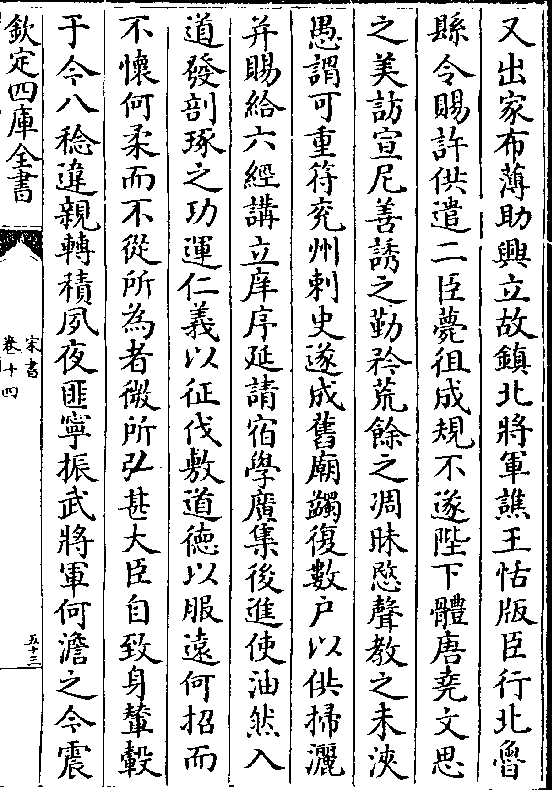 又出家布薄助興立故鎮北將軍譙王恬版臣行北魯
縣令賜許供遣二臣薨徂成規不遂陛下體唐堯文思
之美訪宣尼善誘之勤矜荒餘之凋昧愍聲教之未浹
愚謂可重符兖州刺史遂成舊廟蠲復數户以供掃灑
并賜給六經講立庠序延請宿學廣集後進使油然入
道發剖琢之功運仁義以征伐敷道德以服遠何招而
不懷何柔而不從所為者微所弘甚大臣自致身輦轂
于今八稔違親轉積夙夜匪寧振武將軍何澹之今震
欽定四庫全書
宋書
卷十四
五十三